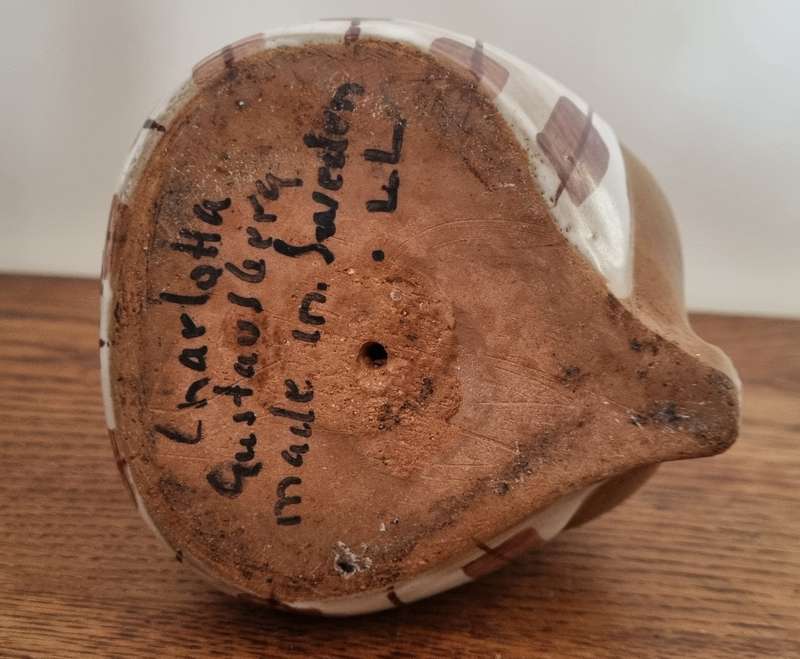 Charlotta
Gustavsberg
made in. Sweden
. LL